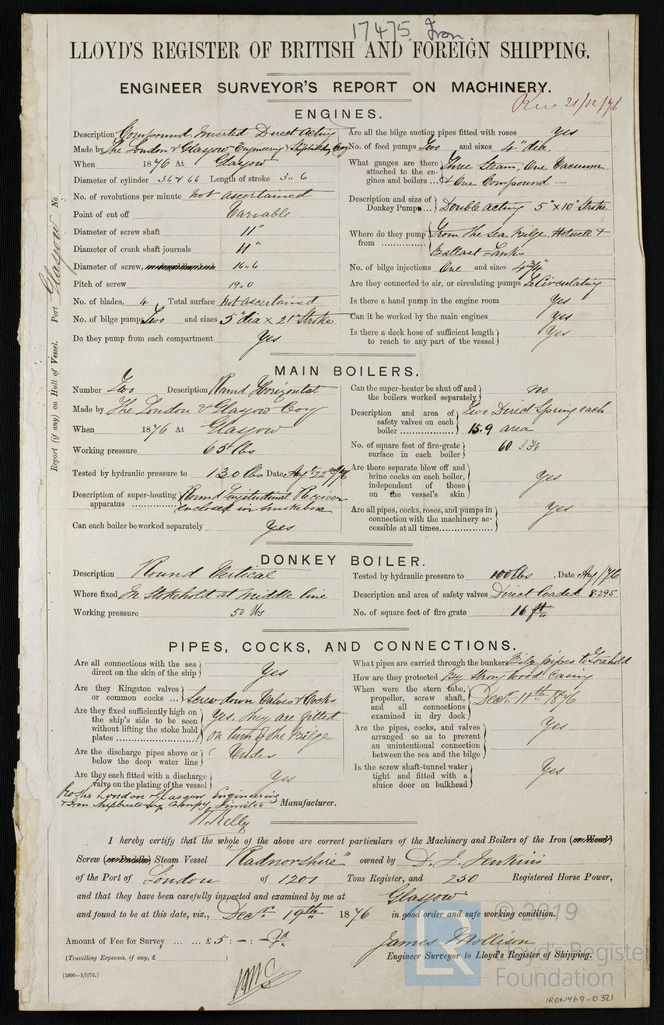 17475 Iron
LLOYD'S REGISTER OF BRITISH AND FOREIGN SHIPPING.
ENGINEER SURVEYOR'S REPORT ON MACHINERY.
21/12/76
Report (if any) on Hull of Vessel. Port Glasgow No.
ENGINES.
Description Compound Inverted Direct Acting
Made by The London & Glasgow Engineering & Shipbuilding Coy
When 1876 At Glasgow
Diameter of cylinder 36 & 66 Length of stroke 3..6
No. of revolutions per minute not ascertained
Point of cut off Variable
Diameter of screw shaft 11"
Diameter of crank shaft journals 11"
Diameter of screw, 16..6
Pitch of screw 19..0
No. of blades, 4 Total surface not ascertained
No. of bilge pumps Two and sizes 5" dia x 21" Stroke
Do they pump from each compartment Yes
Are all the bilge suction pipes fitted with roses Yes
No. of feed pumps Two and sizes 4" dia.
What gauges are there attached to the engines and boilers Three Steam, One Vacuum & One Compound —
Description and size of Donkey Pumps Double Acting 5" x 10" Stroke
Where do they pump from From the Sea, Bilge, Hotwell & Ballast Tanks
No. of bilge injections One and sizes 4 3/4"
Are they connected to air, or circulating pumps To Circulating
Is there a hand pump in the engine room Yes
Can it be worked by the main engines Yes
Is there a deck hose of sufficient length to reach to any part of the vessel Yes
MAIN BOILERS.
Number Two Description Round Horizontal
Made by The London & Glasgow Coy
When 1876 At Glasgow
Working pressure 65 lbs
Tested by hydraulic pressure to 130 lbs Date Augt 22nd/76
Description of super-heating apparatus Round Longitudinal Receiver enclosed in smokebox
Can each boiler be worked separately Yes
Can the super-heater be shut off and the boilers worked separately no
Description and area of safety valves on each boiler Two Direct Spring each 15.9 area
No. of square feet of fire-grate surface in each boiler 60 S. Ft
Are there separate blow off and brine cocks on each boiler, independent of those on the vessel's skin Yes
Are all pipes, cocks, roses, and pumps in connection with the machinery accessible at all times Yes
DONKEY BOILER.
Description Round Vertical
Where fixed In Stokehold at middle line
Working pressure 50 lbs
Tested by hydraulic pressure to 100 lbs, Date Aug/76
Description and area of safety valves Direct loaded 8.295
No. of square feet of fire grate 16 ft
PIPES, COCKS, AND CONNECTIONS.
Are all connections with the sea direct on the skin of the ship Yes
Are they Kingston valves or common cocks Screw down Valves & Cocks
Are they fixed sufficiently high on the ship's side to be seen without lifting the stoke hold plates Yes. they are fitted on turn of the Bilge
Are the discharge pipes above or below the deep water line Under
Are they each fitted with a discharge valve on the plating of the vessel Yes
What pipes are carried through the bunkers Bilge pipes to Forehold
How are they protected By Strong wood casing
When were the stern tube, propeller, screw shaft, and all connections examined in dry dock Decr. 11th 1876
Are the pipes, cocks, and valves arranged so as to prevent an unintentional connection between the sea and the bilge Yes
Is the screw shaft-tunnel water tight and fitted with a sluice door on bulkhead Yes
For the London & Glasgow Engineering
& Iron Shipbuilding Company Limited Manufacturer.
Kelly
I hereby certify that the whole of the above are correct particulars of the Machinery and Boilers of the Iron (or Wood)
Screw (or Paddle) Steam Vessel "Radnorshire" owned by D. J. Jenkins
of the Port of London of 1201 Tons Register, and 250 Registered Horse Power,
and that they have been carefully inspected and examined by me at Glasgow
and found to be at this date, viz., Decr. 19th 1876 in good order and safe working condition.
Amount of Fee for Survey ... ... £5 : - : -
James Mollison
Engineer Surveyor to Lloyd's Register of Shipping.
(Travelling Expenses, if any, £ )
(1000—1/9/76.)
© 2019
Lloyd's Register
Foundation
LR
IRON469-0321